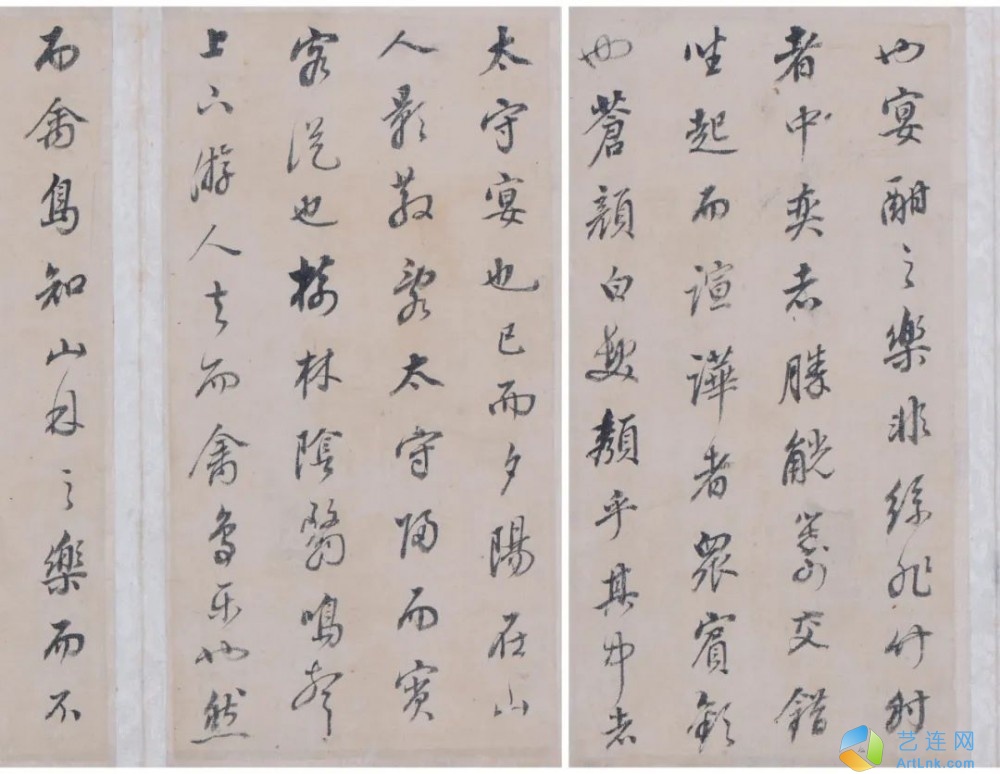 也宴酣之樂非絲非竹射
者中奕者勝觥籌交錯
坐起而諠譁者眾賓歡
也蒼顏白髮頹乎其中者
太守宴也已而夕陽在山
人影散亂太守歸而賓
客從也樹林陰翳鳴聲
上下游人去而禽鳥樂也然
而禽鳥知山林之樂而不
艺连网
ArtLnk.com